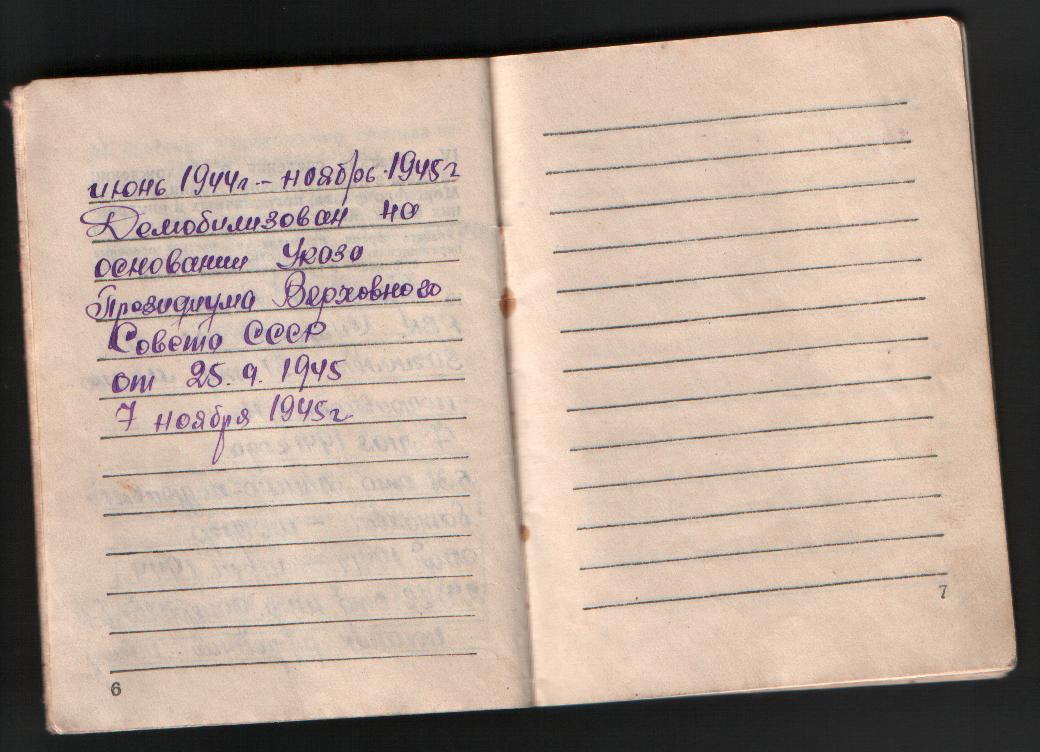 июнь 1944г. – ноябрь 1945г
Демобилизован на
основании Указа
Президиума Верховного
Совета СССР
от 25.9.1945
7 ноября 1945г.
6
7